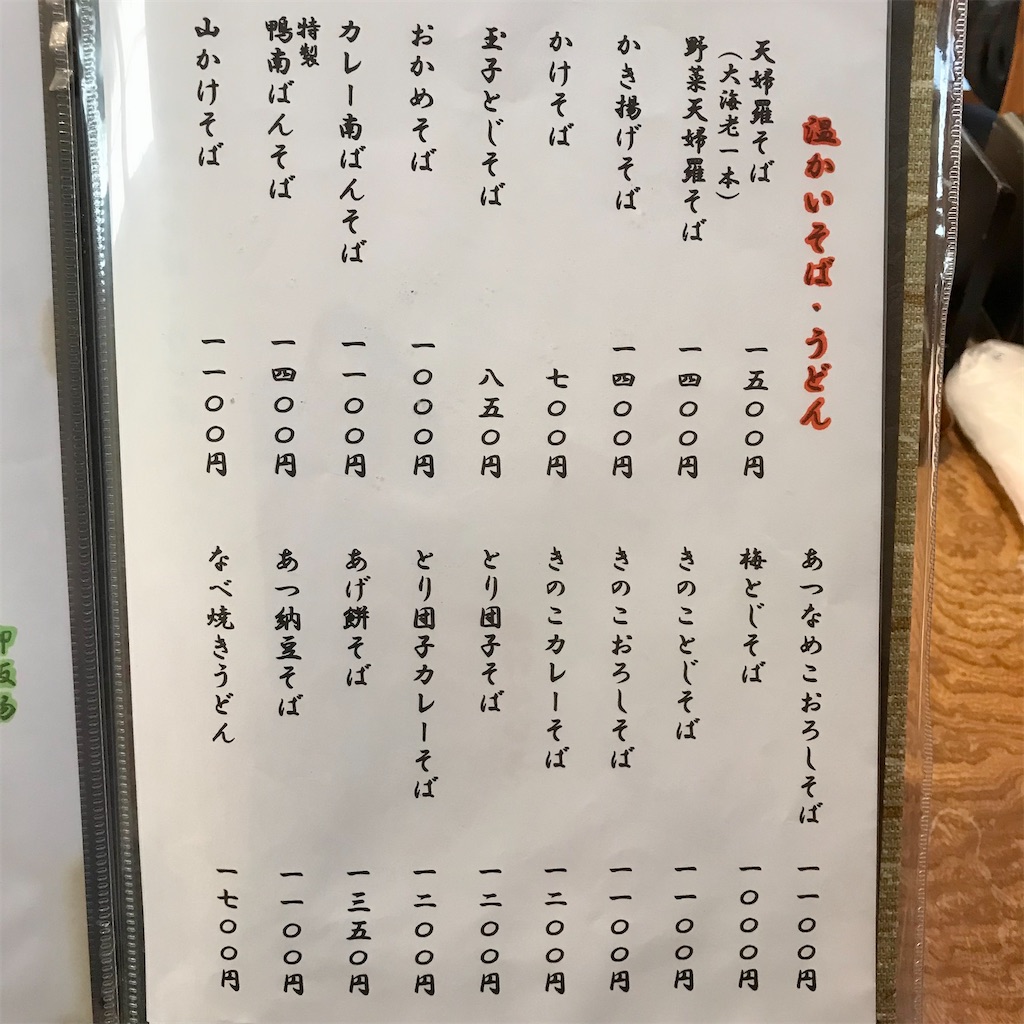 温かいそば・うどん
天婦羅そば
(大海老一本)
一五〇〇円
野菜天婦羅そば
一四〇〇円
かき揚げそば
一四〇〇円
かけそば
七〇〇円
玉子とじそば
八五〇円
おかめそば
一〇〇〇円
カレー南ばんそば
一一〇〇円
特製
鴨南ばんそば
一四〇〇円
山かけそば
一一〇〇円
あつなめこおろしそば
一一〇〇円
梅とじそば
一〇〇〇円
きのことじそば
一一〇〇円
きのこおろしそば
一一〇〇円
きのこカレーそば
一二〇〇円
とり団子そば
一二〇〇円
とり団子カレーそば
一二〇〇円
あげ餅そば
一三五〇円
あつ納豆そば
一一〇〇円
なべ焼きうどん
一七〇〇円